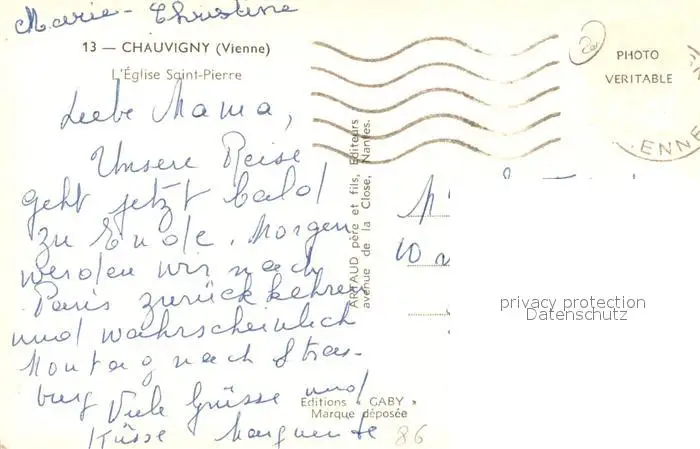 Marie-Christine
13 — CHAUVIGNY (Vienne)
L'Église Saint-Pierre
Liebe Mama,
Unsere Reise
geht jetzt bald
zu Ende. Morgen
werden wir nach
Paris zurückkehren
und wahrscheinlich
Montag nach Stras-
burg Viele Grüsse und
Küsse Marguerite
ARTAUD père et fils, Editeurs
avenue de la Close, Nantes.
Editions « GABY »
Marque déposée
86
PHOTO
VERITABLE
ENNE
privacy protection
Datenschutz